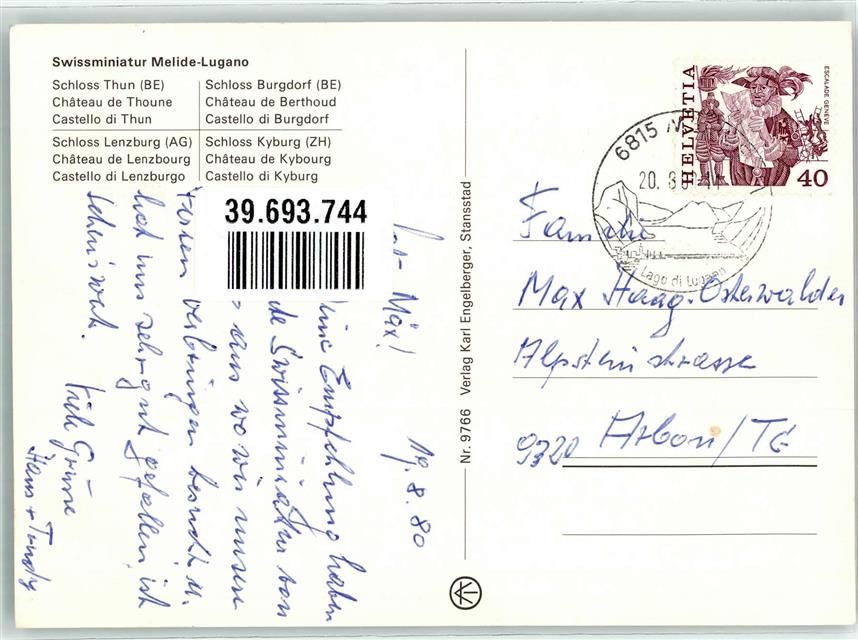 Swissminiatur Melide-Lugano
Schloss Thun (BE)
Château de Thoune
Castello di Thun
Schloss Burgdorf (BE)
Château de Berthoud
Castello di Burgdorf
Schloss Lenzburg (AG)
Château de Lenzbourg
Castello di Lenzburgo
Schloss Kyburg (ZH)
Château de Kybourg
Castello di Kyburg
39.693.744
19.8.80
Max!
Empfehlung haben
Swissminiatur von
aus wo wir unsere
Ferien verbringen besucht u.
hat uns sehr gut gefallen, ist
Viele Grüsse
Hans +
Nr. 9766 Verlag Karl Engelberger, Stansstad
HELVETIA
ESCALADE GENÈVE
40
6815
20.
Lago di Lugano
Familie
Max Haag-Osterwalder
Alpsteinstrasse
9320 Arbon/TG